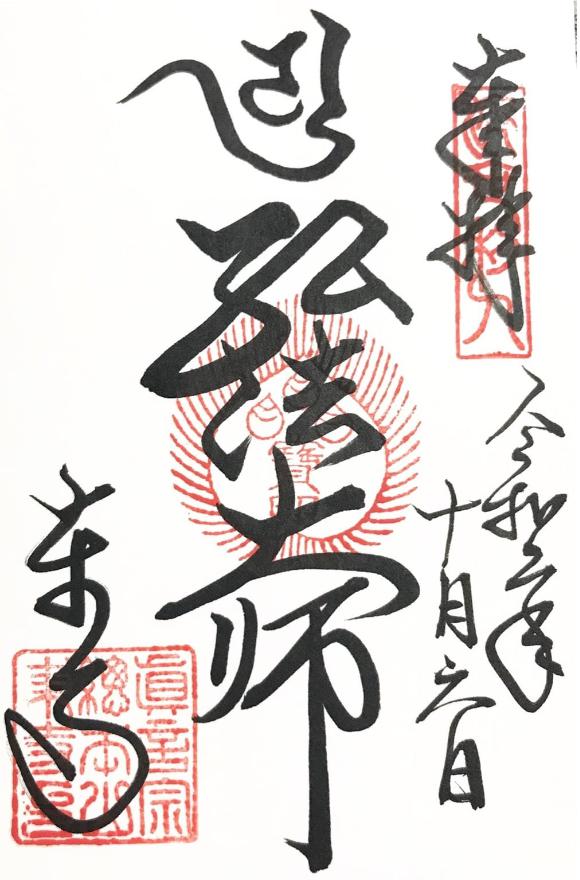 奉拝
令和二年
十月六日
弘法大師
東寺
真言宗
総本山
東寺印